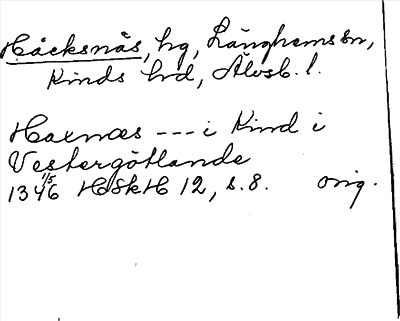 Häcksnäs, hg, Länghems sn,
Kinds hd, Älvsb. l.
Haxnæs --- i Kind i
Vestergötlande
1346 1/5 HSkH 12, s. 8. orig.